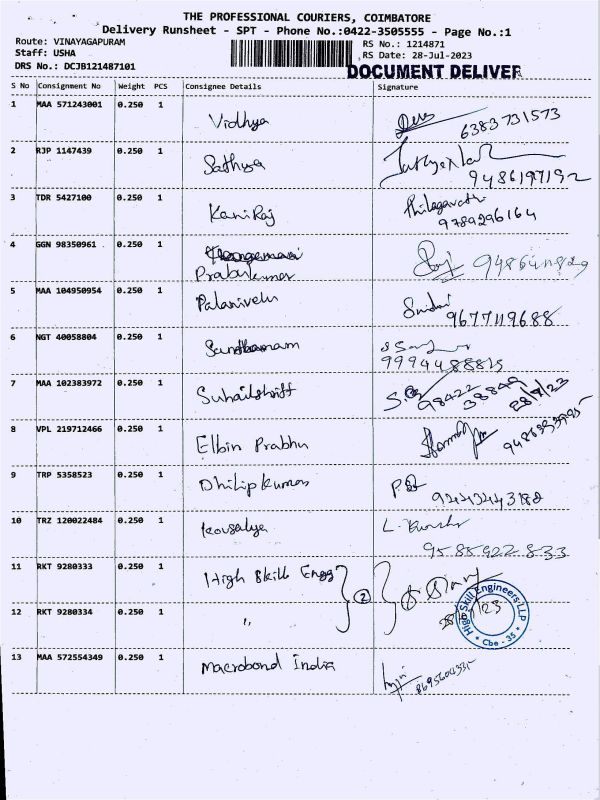 THE PROFESSIONAL COURIERS, COIMBATORE
Delivery Runsheet - SPT - Phone No.:0422-3505555 - Page No.:1
Route: VINAYAGAPURAM
Staff: USHA
DRS No.: DCJB121487101
RS No.: 1214871
RS Date: 28-Jul-2023
DOCUMENT DELIVER
S No Consignment No Weight PCS Consignee Details Signature
1 MAA 571243001 0.250 1 Vidhya 6383731573
2 RJP 1147439 0.250 1 Sathya 9486197192
3 TDR 5427100 0.250 1 KaniRaj
9789296164
4 GGN 98350961 0.250 1
Prabukumar
5 MAA 104950954 0.250 1 Palanivelu
9677119688
6 NGT 40058804 0.250 1 Santhanam
7 MAA 102383972 0.250 1 Suhailshriff 98422 38849 28/7/23
8 VPL 219712466 0.250 1 Elbin Prabhu
9 TRP 5358523 0.250 1 Dhilipkumar
10 TRZ 120022484 0.250 1 Kousalya
9585922833
11 RKT 9280333 0.250 1 High Skill Engg 2
12 RKT 9280334 0.250 1 "
High Skill Engineers LLP
* Cbe - 35 *
13 MAA 572554349 0.250 1 Macrobond India